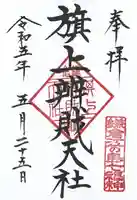 奉拝
旗上辨財天社
令和五年 五月二十五日